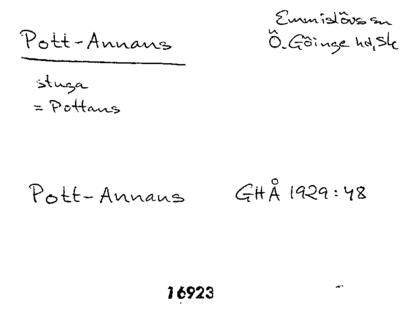 Pott-Annans
Emmislövs sn
Ö. Göinge hd, Sk
stuga
= Pottans
Pott-Annans GHÅ 1929:48
16923